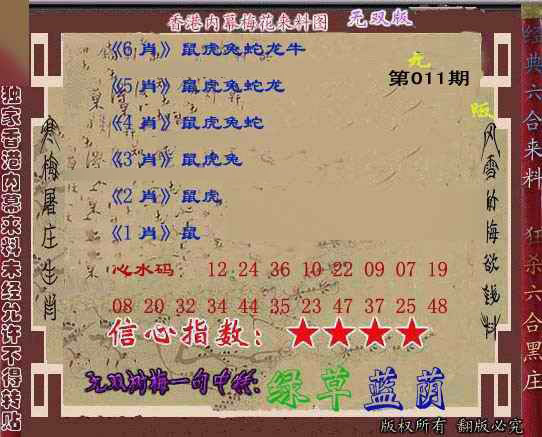 香港内幕梅花来料图 无双版
《6 肖》鼠虎兔蛇龙牛
无
第011期
《5 肖》鼠虎兔蛇龙
版
《4 肖》鼠虎兔蛇
《3 肖》鼠虎兔
《2 肖》鼠虎
《1 肖》鼠
心水码: 12 24 36 10 22 09 07 19
08 20 32 34 44 35 23 47 37 25 48
信心指数: ★★★★
一句中特: 绿草蓝荫
版权所有 翻版必究
独家香港内幕来料未经允许不得转贴
寒梅屠庄生肖
经典六合来料 狂杀六合黑庄